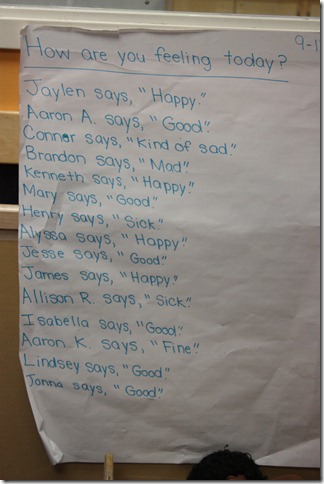 How are you feeling today?
9-1
Jaylen says, "Happy."
Aaron A. says, "Good."
Connor says, "Kind of sad."
Brandon says, "Mad."
Kenneth says, "Happy."
Mary says, "Good."
Henry says, "Sick."
Alyssa says, "Happy."
Jesse says, "Good."
James says, "Happy."
Allison R. says, "Sick."
Isabella says, "Good."
Aaron K. says, "Fine."
Lindsey says, "Good."
Jonna says, "Good."